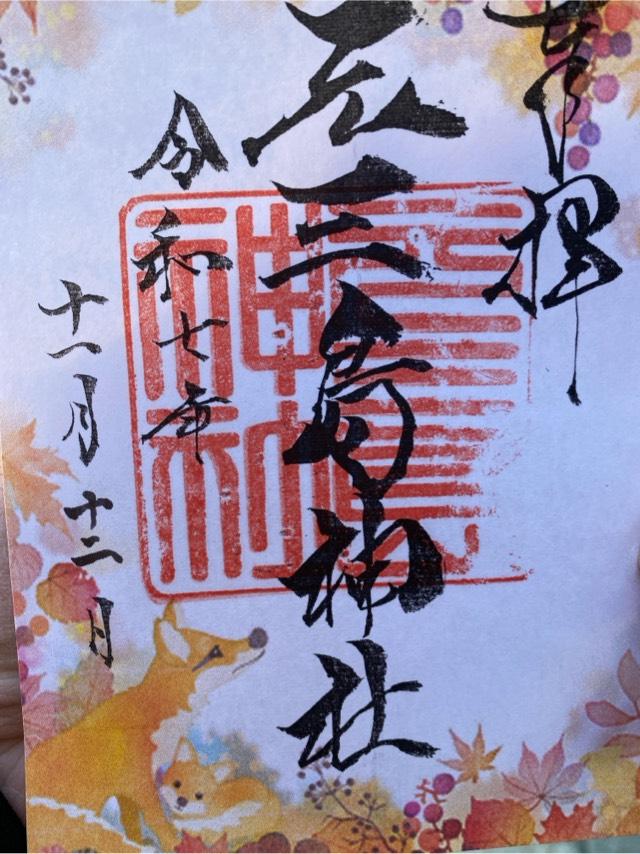 奉拝
元三島神社
令和七年
十一月十二日